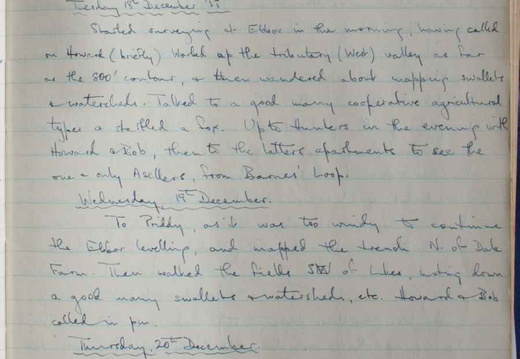 Tuesday 18th December '51
Started surveying at Ebbor in the morning, having called
on Howard (briefly) Worked up the tributary (West) valley as far
as the 800' contour, & then wandered about mapping swallets
& watersheds. Talked to a good many cooperative agricultural
types & startled a fox. Up to Hunters in the evening with
Howard & Bob, then to the latters apartments to see the
one & only Asellers, from Barnes' Loop.
Wednesday, 19th December.
To Priddy, as it was too windy to continue
the Ebbor levelling, and mapped the trench N. of Dale
Farm. Then walked the fields SW of Lakes, noting down
a good many swallets & watersheds, etc. Howard & Bob
called in pm.
Thursday, 20th December.